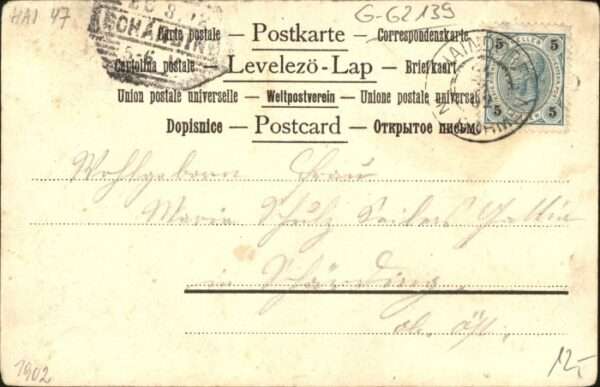 HAI 47
G-G2139
SCHÄRDING
Karta postale — Postkarte — Correspondenzkarte
Cartolina postale — Levelezö-Lap — Briefkaart
Union postale universelle — Weltpostverein — Unione postale universale
Dopisnice — Postcard — Открытое письмо
5 HELLER 5
5 5
Wohlgeborn Frau
Maria Schulz Seilers Gattin
in Schärding
ob. Öst.
1902
12,-